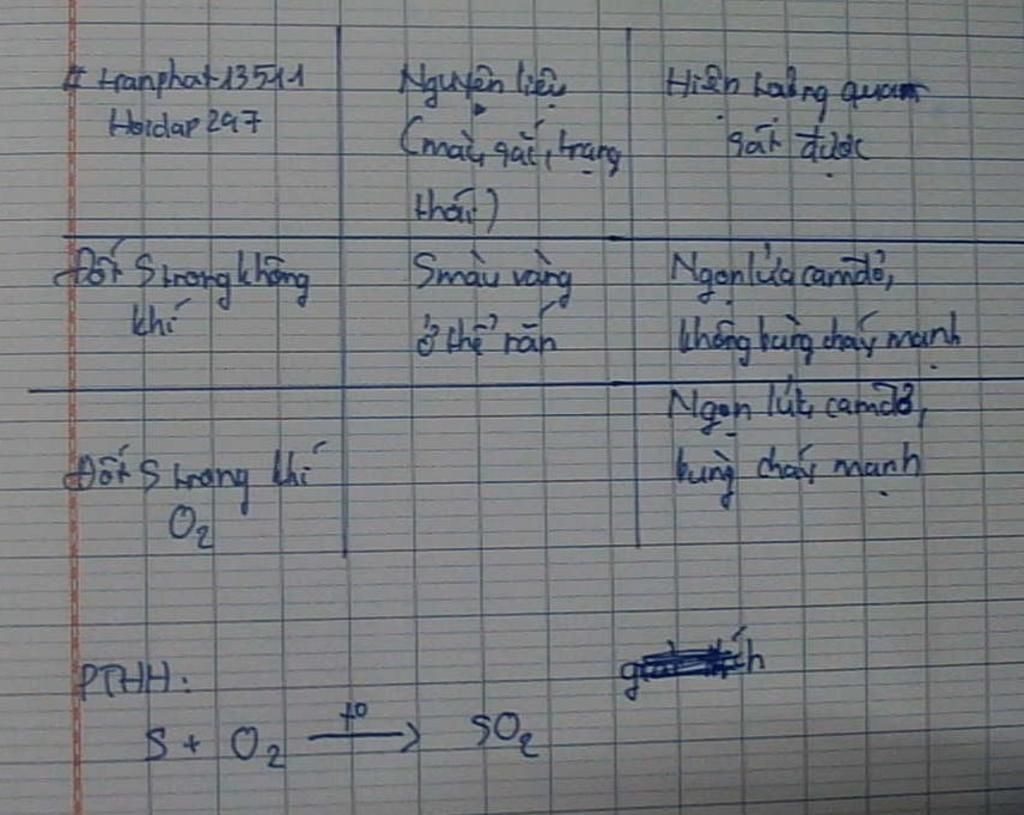 # tranphat13511
Hoidap247
Nguyên liệu
(màu sắc, trạng
thái)
Hiện tượng quan
sát được
Đốt S trong không
khí
S màu vàng
ở thể rắn
Ngọn lửa cam đỏ,
không bùng cháy mạnh
Đốt S trong khí
O₂
Ngọn lửa cam đỏ,
bùng cháy mạnh
PTHH:
S + O₂ →(t°) SO₂